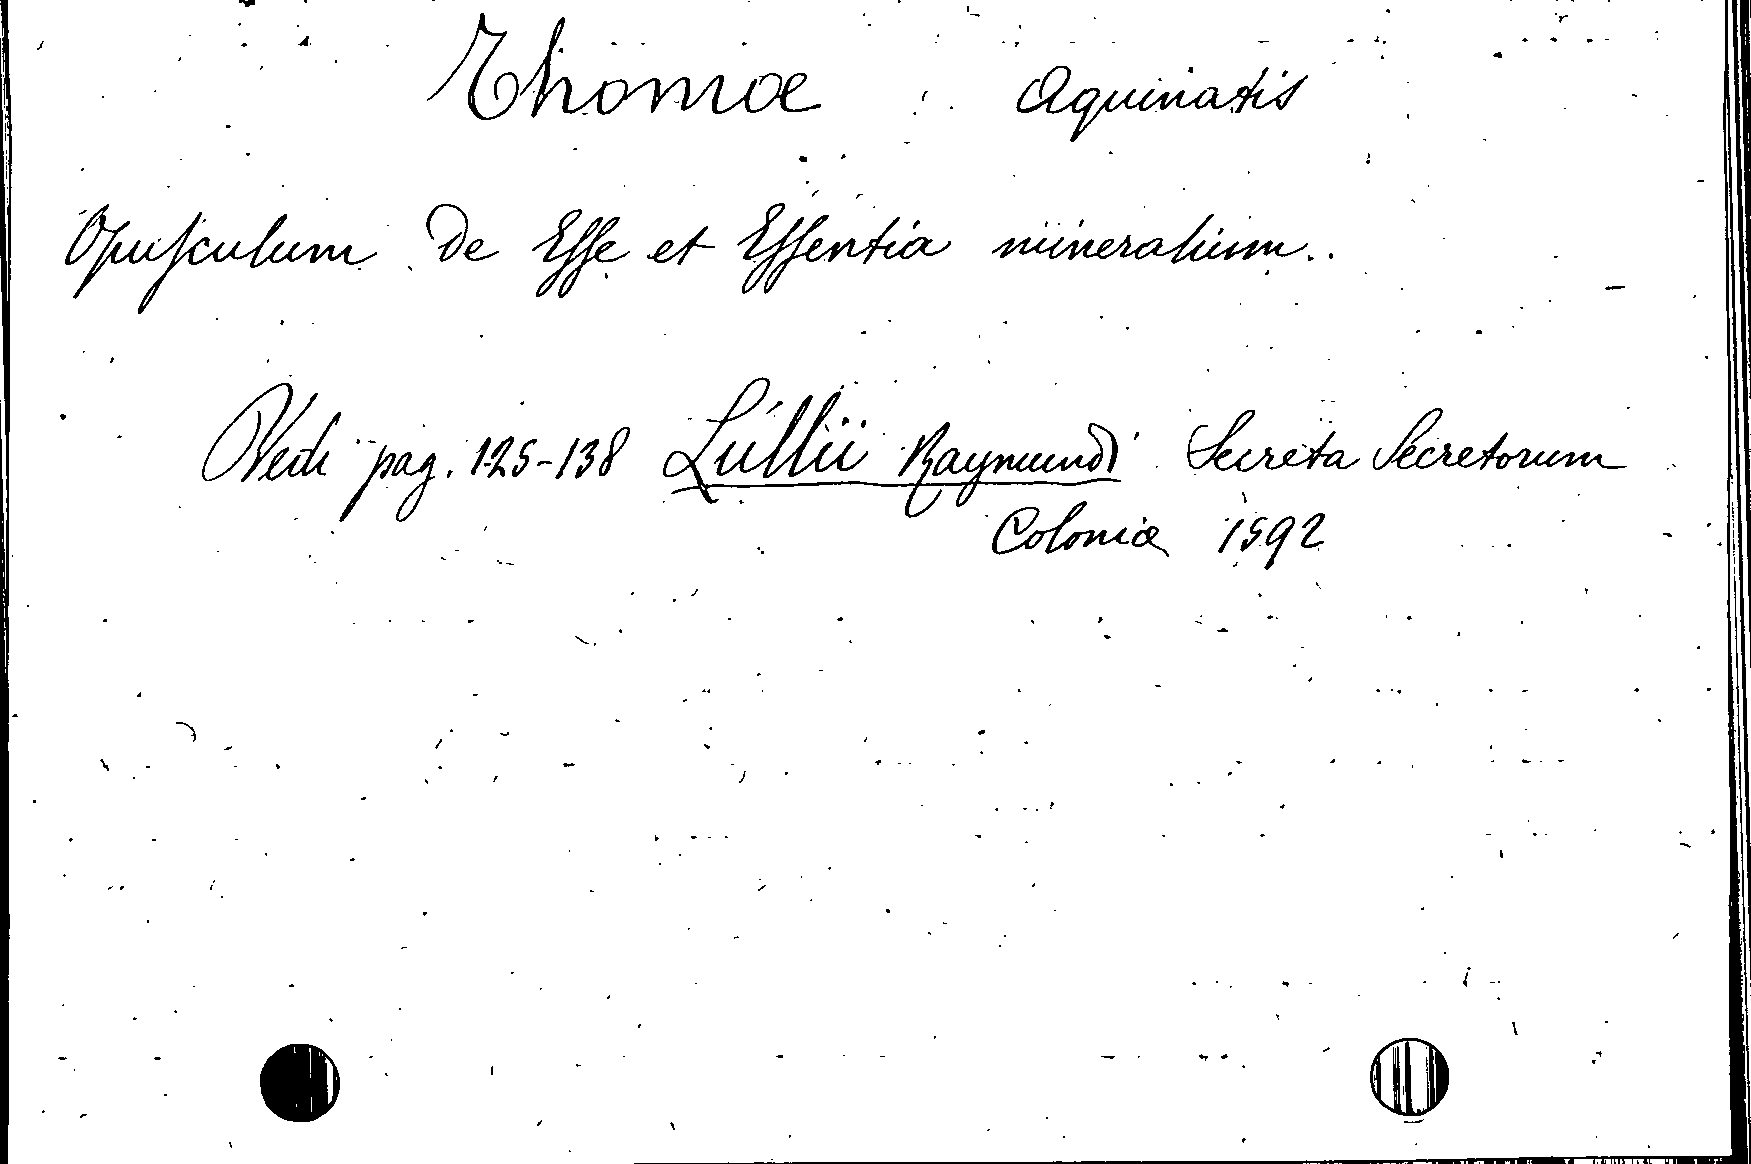 Thomæ Aquinatis
Opuſculum De Eſſe et Eſſentia mineralium..
Vedi pag. 125-138 Lullii Raymundi Secreta Secretorum
Coloniæ 1592